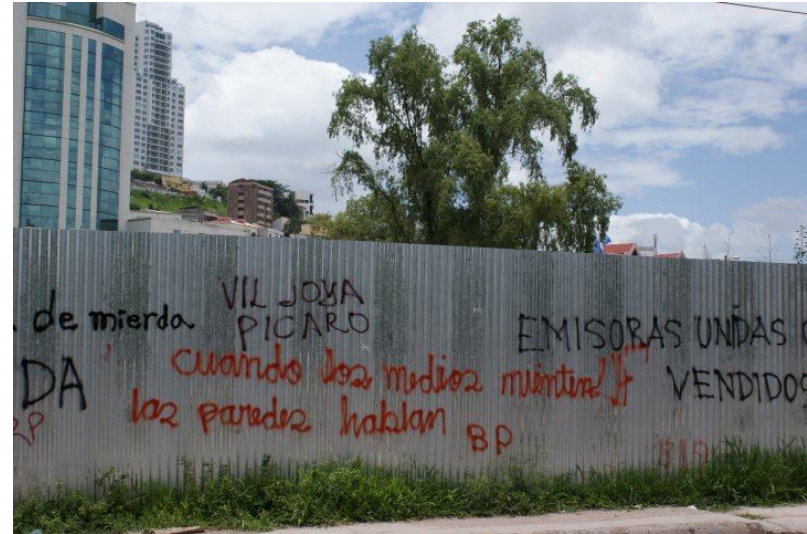 de mierda
VIL JOYA
PICARO
EMISORAS UNIDAS
DA
cuando los medios mienten!
VENDIDOS
las paredes hablan
BP